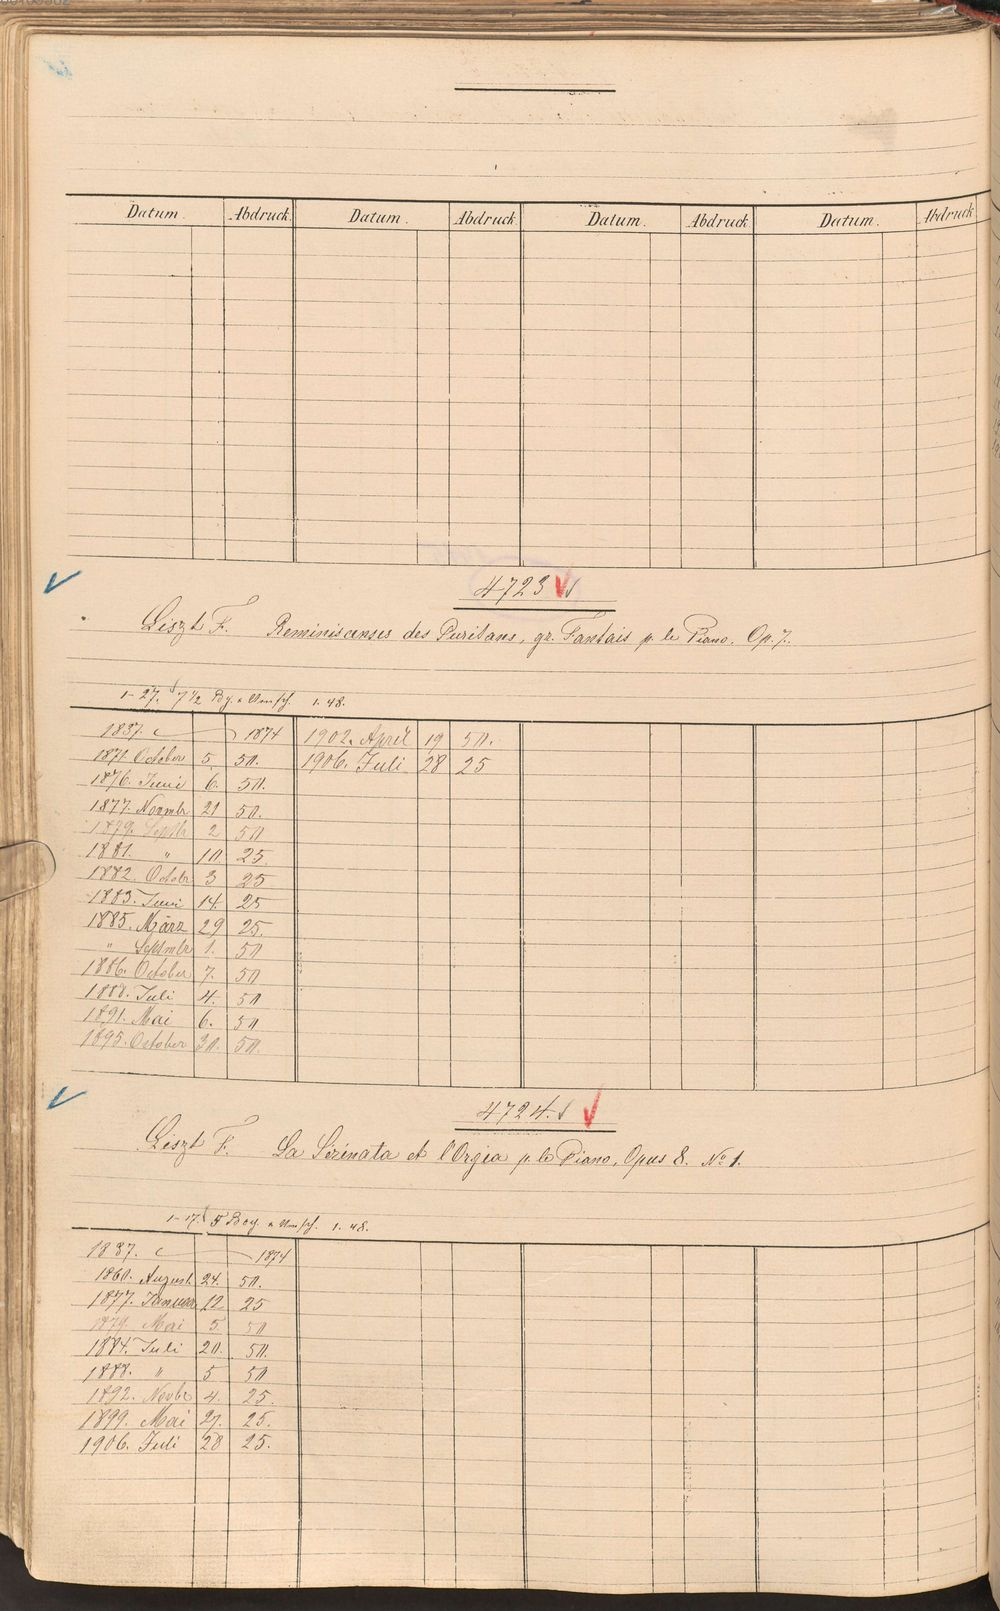 Datum. Abdruck. Datum. Abdruck Datum. Abdruck Datum. Abdruck
4723
Liszt F. Reminiscenses des Puritans, gr. Fantais p. le Piano. Op. 7.
1-27. 7 1/2 Bg. 1.48.
1837. 1874 1902. April 19 50.
1871. October 5. 50. 1906. Juli 28 25
1876. Juni 6. 50.
1877. Novmbr 21 50.
1879. Septb 2 50
1881. " 10 25.
1882. Octobr 3 25
1883. Juni 14. 25
1885. März 29 25.
" Septmbr 1. 50
1886. October 7. 50
1888. Juli 4. 50
1891. Mai 6. 50
1895. October 30. 50.
4724.
Liszt F. La Serinata et l'Orgia p. le Piano, Opus 8. No 1.
1-17. 5 Bog. 1.48.
1837. 1874
1860. August 24. 50.
1877. Januar 12 25
1879. Mai 5 50
1884. Juli 20. 50.
1888. " 5 50
1892. Novbr 4. 25.
1899. Mai 27. 25.
1906. Juli 28 25.